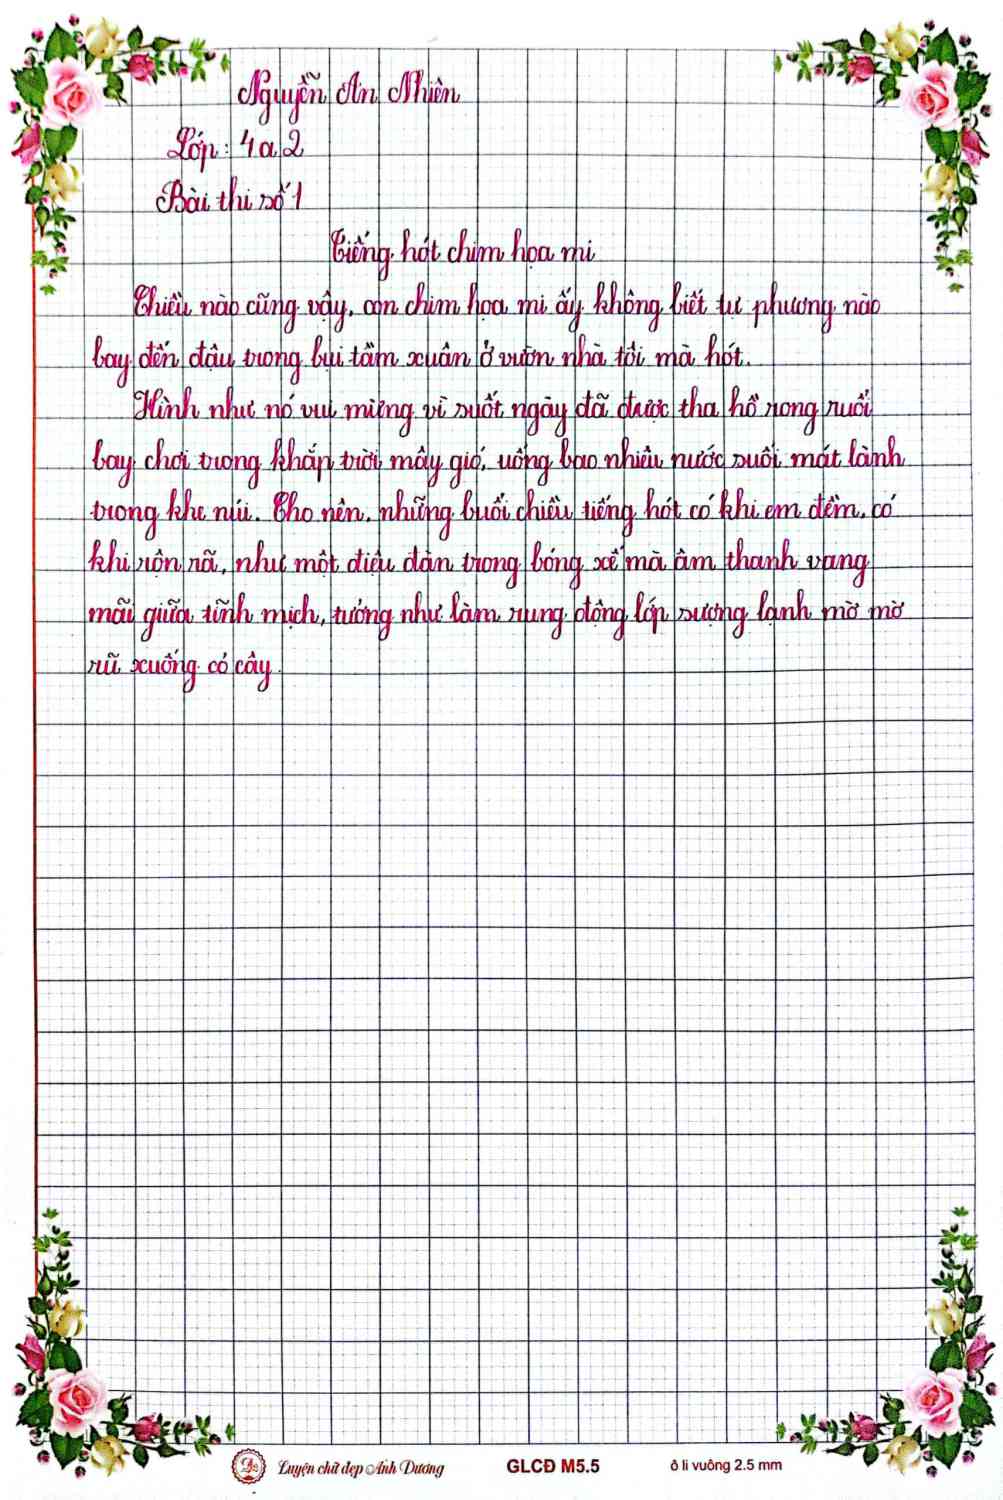 Nguyễn An Nhiên
Lớp: 4a2
Bài thi số 1
Tiếng hót chim họa mi
Chiều nào cũng vậy, con chim họa mi ấy không biết tự phương nào
bay đến đậu trong bụi tầm xuân ở vườn nhà tôi mà hót.
Hình như nó vui mừng vì suốt ngày đã được tha hồ rong ruổi
bay chơi trong khắp trời mây gió, uống bao nhiêu nước suối mát lành
trong khe núi. Cho nên, những buổi chiều tiếng hót có khi êm đềm, có
khi rộn rã, như một điệu đàn trong bóng xế mà âm thanh vang
mãi giữa tĩnh mịch, tưởng như làm rung động lớp sương lạnh mờ mờ
rũ xuống cỏ cây.
Luyện chữ đẹp Ánh Dương
GLCĐ M5.5
ô li vuông 2.5 mm